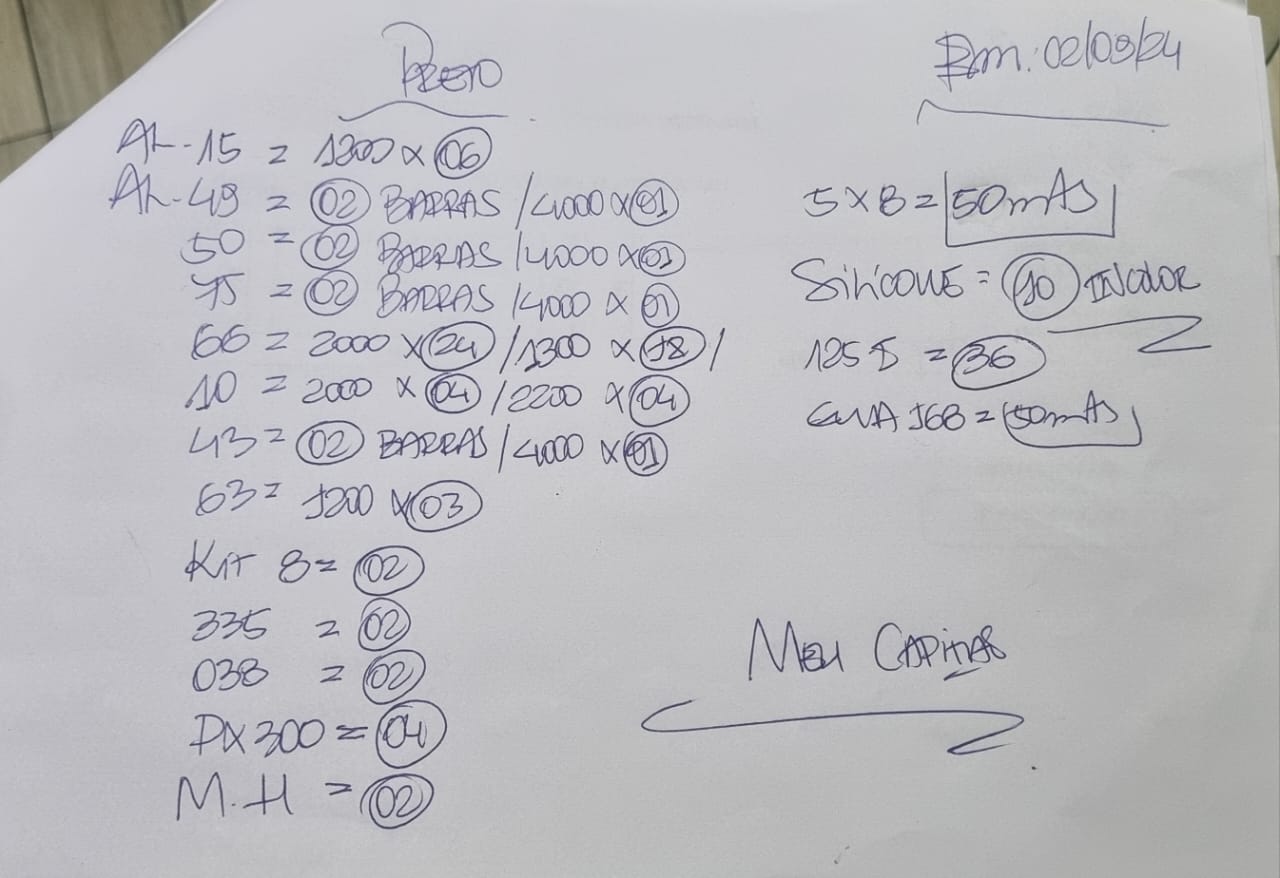 PRETO
Bm: 02/09/24
AL-15 = 1200 x 06
AL-49 = 02 BARRAS / 4000 x 01
50 = 02 BARRAS / 4000 x 01
75 = 02 BARRAS / 4000 x 01
66 = 2000 x 24 / 1300 x 18 /
10 = 2000 x 04 / 2200 x 04
43 = 02 BARRAS / 4000 x 01
63 = 1200 x 03
Kit 8 = 02
335 = 02
038 = 02
PX 300 = 04
M.H = 02
5 x 8 = 50 mts
Silicone = 10 INColoR
125 = 36
168 = 50 mts
Meu